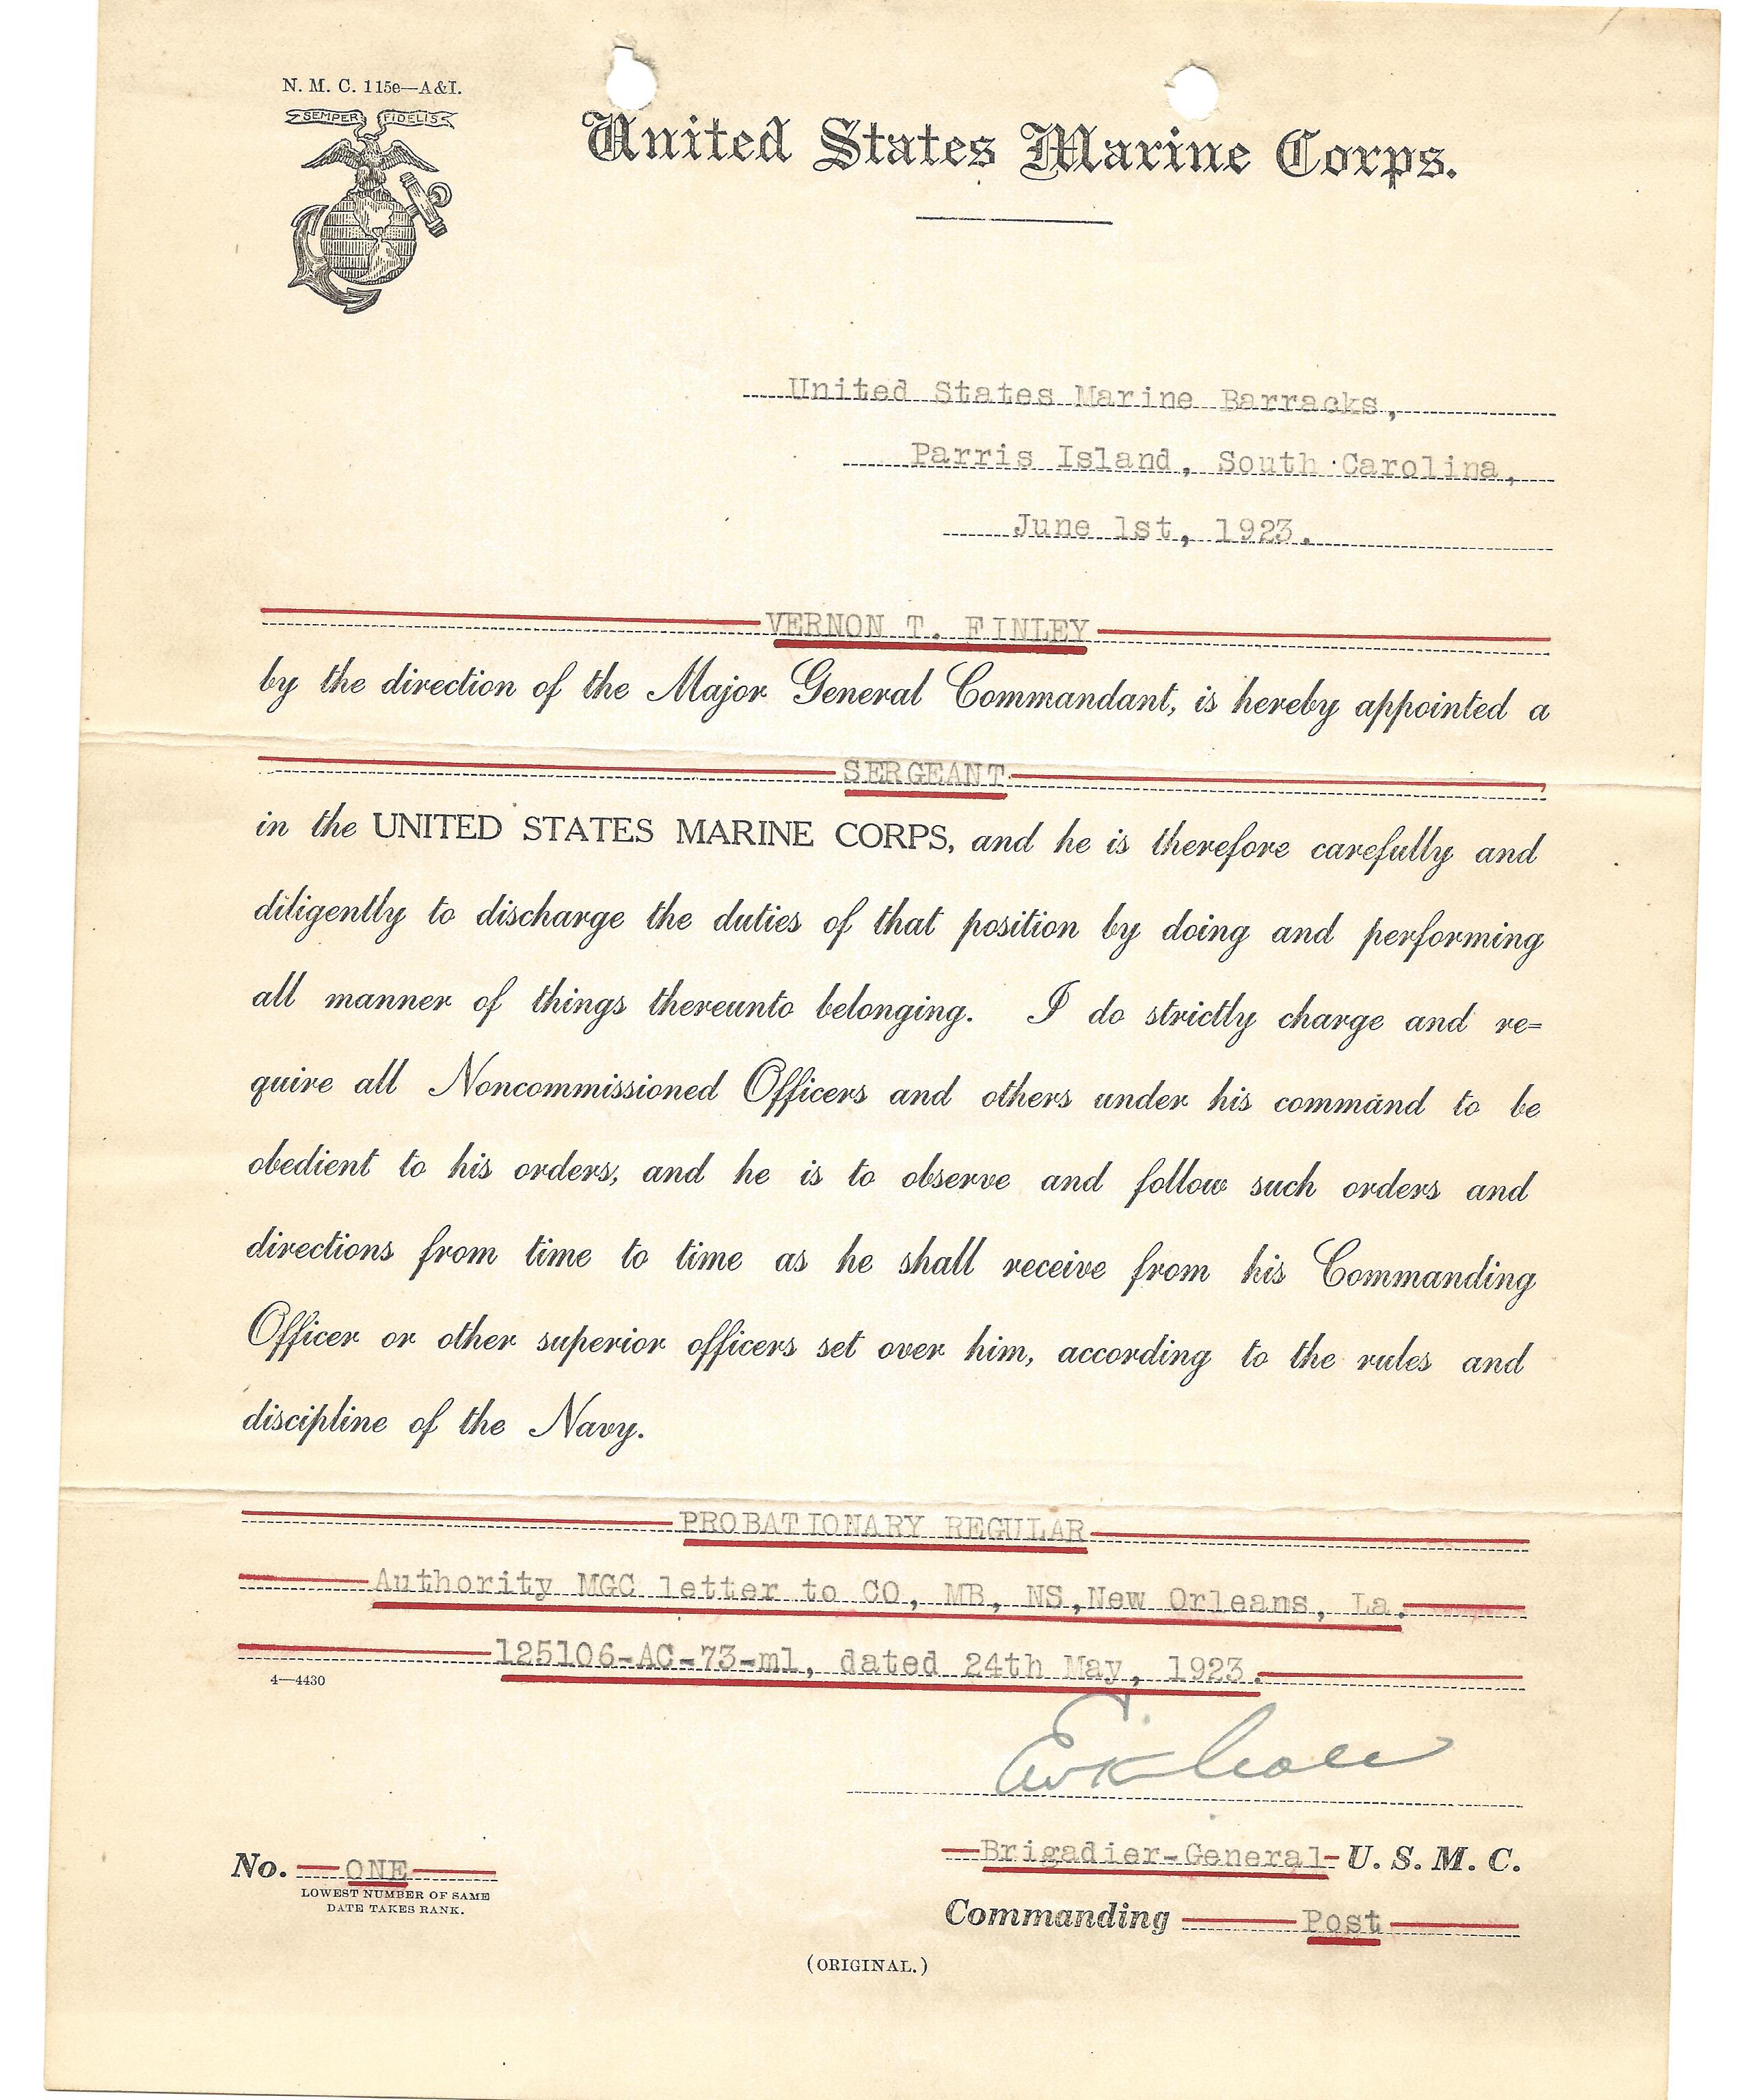 N. M. C. 115e—A&I.
SEMPER FIDELIS
United States Marine Corps.
United States Marine Barracks,
Parris Island, South Carolina,
June 1st, 1923.
VERNON T. FINLEY
by the direction of the Major General Commandant, is hereby appointed a
SERGEANT
in the UNITED STATES MARINE CORPS, and he is therefore carefully and
diligently to discharge the duties of that position by doing and performing
all manner of things thereunto belonging. I do strictly charge and re=
quire all Noncommissioned Officers and others under his command to be
obedient to his orders, and he is to observe and follow such orders and
directions from time to time as he shall receive from his Commanding
Officer or other superior officers set over him, according to the rules and
discipline of the Navy.
PROBATIONARY REGULAR
Authority MGC letter to CO, MB, NS,New Orleans, La.
125106-AC-73-ml, dated 24th May, 1923.
4—4430
Brigadier-General- U. S. M. C.
No. ONE
LOWEST NUMBER OF SAME
DATE TAKES RANK.
Commanding Post
(ORIGINAL.)